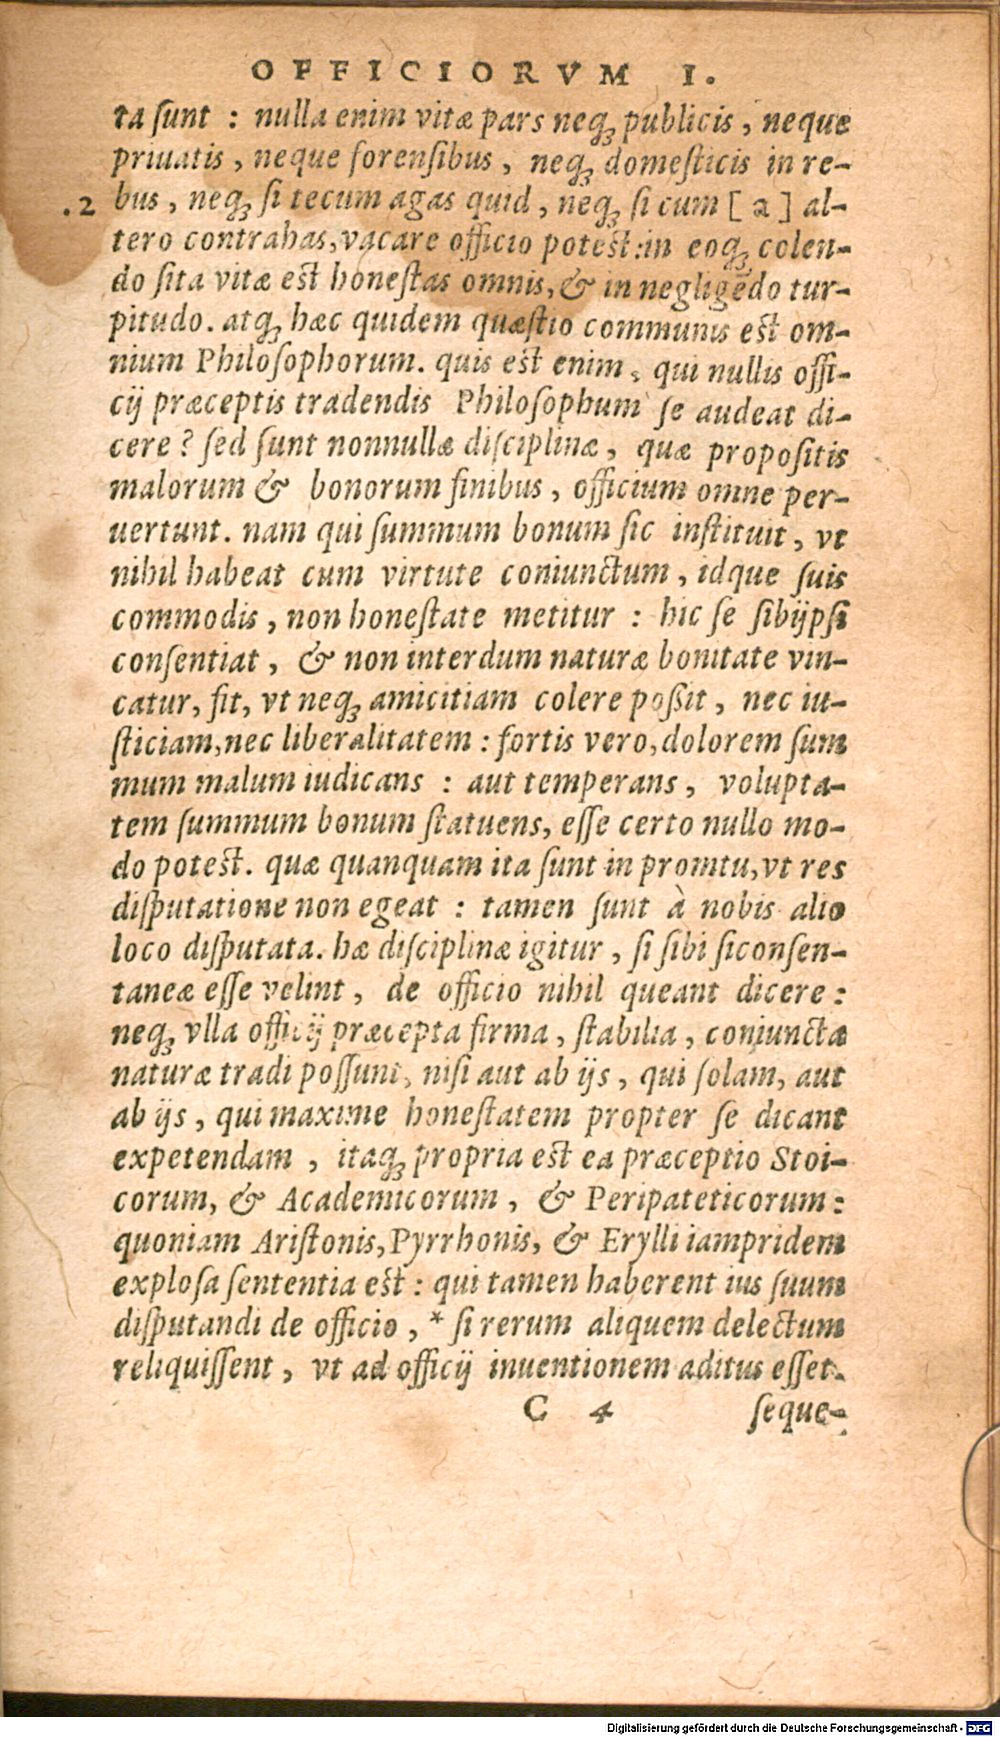 OFFICIORVM I.
ta ſunt : nulla enim vitæ pars neqꝫ publicis , neque
priuatis , neque forenſibus , neqꝫ domeſticis in re-
.2 bus , neqꝫ ſi tecum agas quid , neqꝫ ſi cum [ 2 ] al-
tero contrahas, vacare officio poteſt : in eoqꝫ colen-
do ſita vitæ eſt honeſtas omnis, & in negligẽdo tur-
pitudo. atqꝫ hæc quidem quæſtio communis eſt om-
nium Philoſophorum. quis eſt enim , qui nullis offi-
cij præceptis tradendis Philoſophum ſe audeat di-
cere ? ſed ſunt nonnullæ diſciplinæ , quæ propoſitis
malorum & bonorum finibus , officium omne per-
uertunt. nam qui ſummum bonum ſic inſtituit , vt
nihil habeat cum virtute coniunctum , idque ſuis
commodis , non honeſtate metitur : hic ſe ſibijpſi
conſentiat , & non interdum naturæ bonitate vin-
catur, fit, vt neqꝫ amicitiam colere poſſit , nec iu-
ſticiam, nec liberalitatem : fortis vero, dolorem ſum
mum malum iudicans : aut temperans , volupta-
tem ſummum bonum ſtatuens, eſſe certo nullo mo-
do poteſt. quæ quanquam ita ſunt in promtu, vt res
diſputatione non egeat : tamen ſunt à nobis alio
loco diſputata. hæ diſciplinæ igitur , ſi ſibi ſiconſen-
taneæ eſſe velint , de officio nihil queant dicere :
neqꝫ vlla officij præcepta firma , ſtabilia , coniuncta
naturæ tradi poſſunt, niſi aut ab ijs , qui ſolam, aut
ab ijs , qui maxime honeſtatem propter ſe dicant
expetendam , itaqꝫ propria eſt ea præceptio Stoi-
corum, & Academicorum , & Peripateticorum :
quoniam Ariſtonis, Pyrrhonis, & Erylli iampridem
exploſa ſententia eſt : qui tamen haberent ius ſuum
diſputandi de officio , * ſi rerum aliquem delectum
reliquiſſent , vt ad officij inuentionem aditus eſſet.
C 4 ſeque-
Digitalisierung gefördert durch die Deutsche Forschungsgemeinschaft - DFG